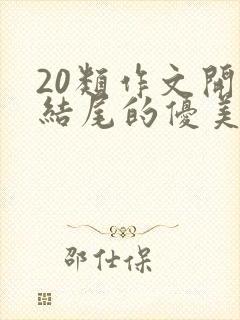 20類作文開
結尾的優美
邵仕保